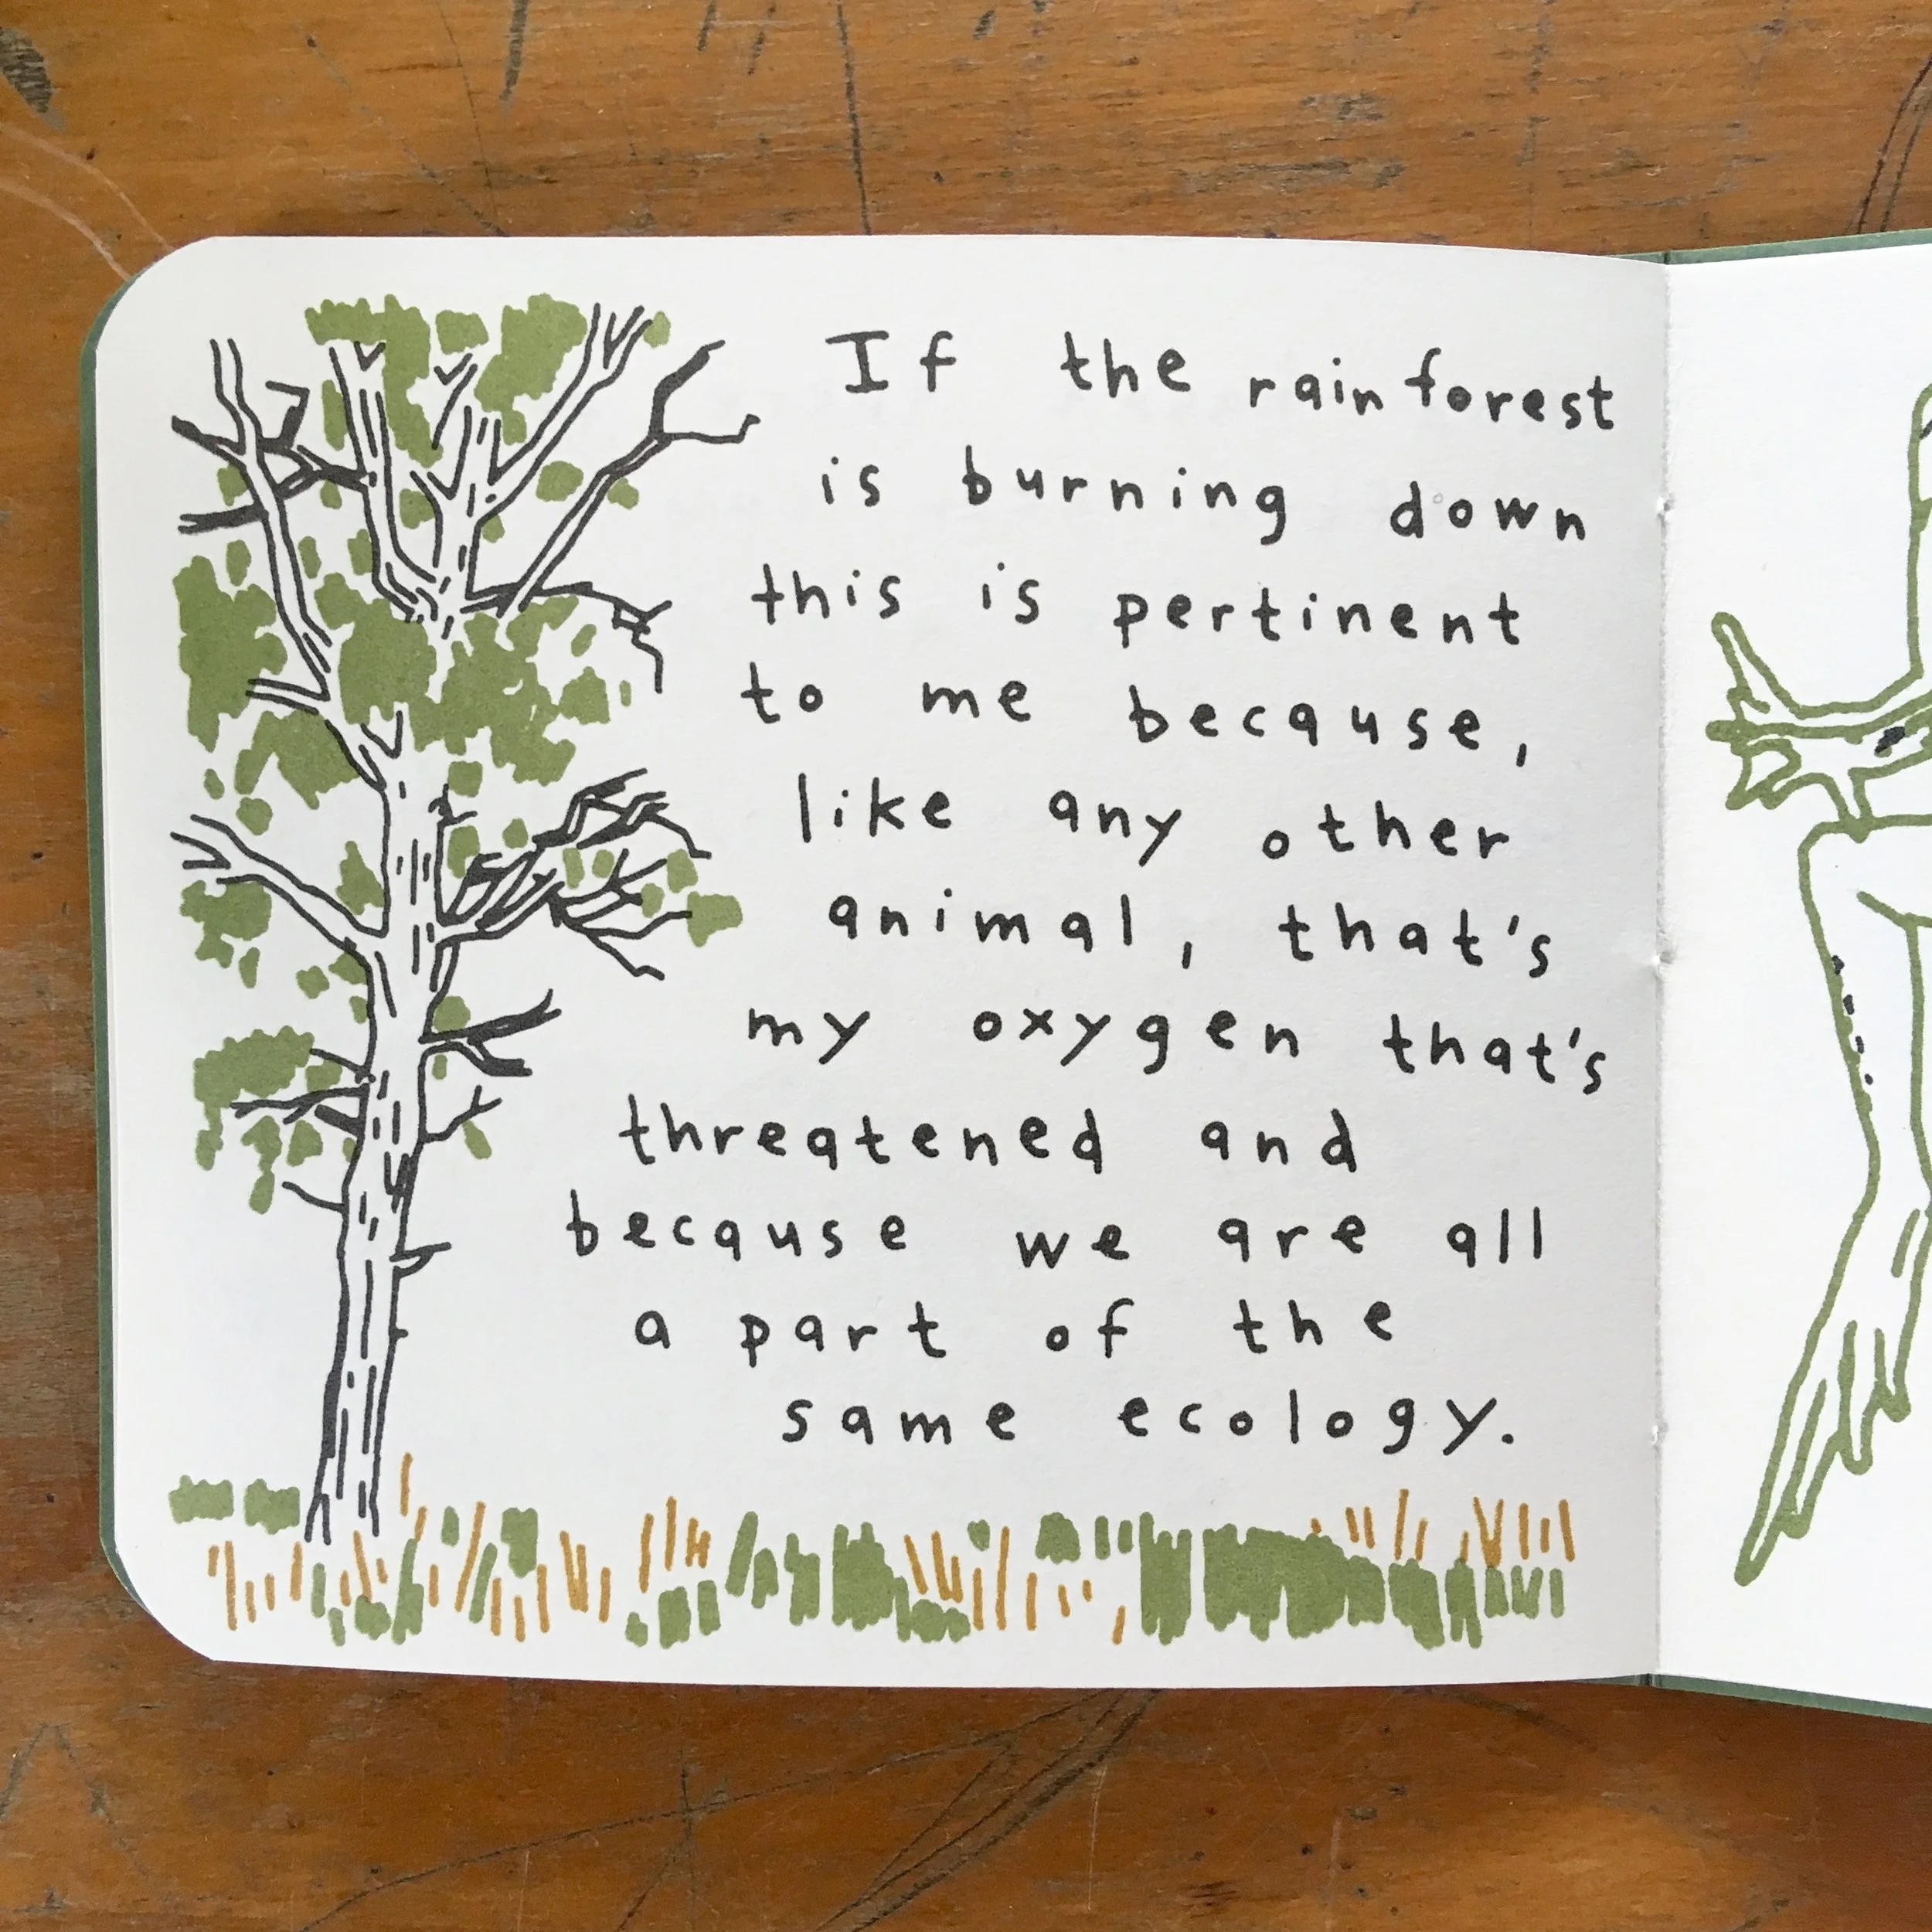 If the rainforest
is burning down
this is pertinent
to me because,
like any other
animal, that's
my oxygen that's
threatened and
because we are all
a part of the
same ecology.